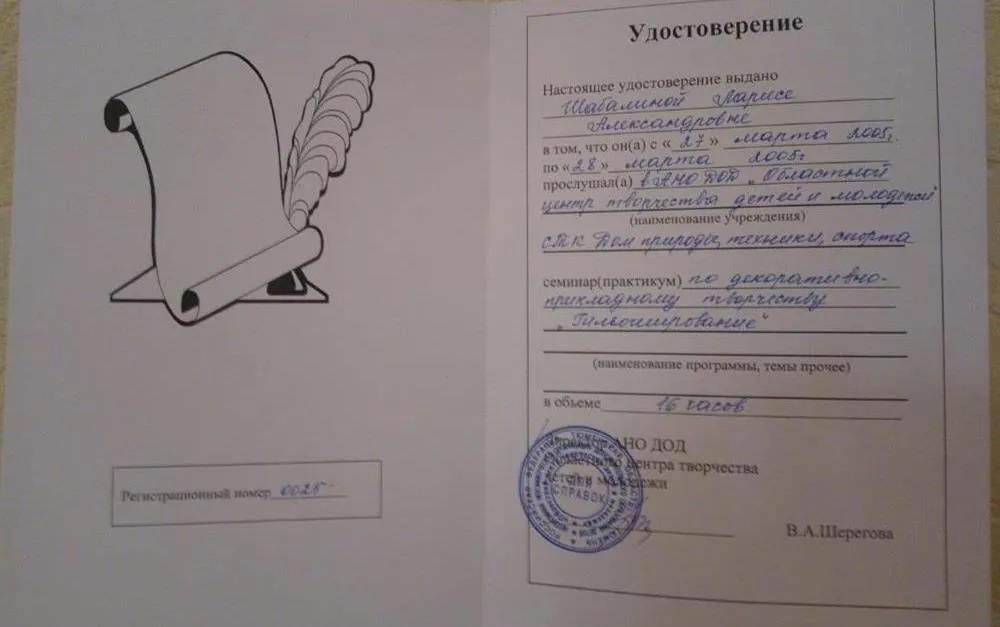 Регистрационный номер 0025
Удостоверение
Настоящее удостоверение выдано
Шабалиной Ларисе
Александровне
в том, что он(а) с «27» марта 2005г.
по «28» марта 2005г
прослушал(а) в АНО ДОД „Областной
центр творчества детей и молодежи"
(наименование учреждения)
СТК Дом природы, техники, спорта
семинар(практикум) по декоративно-
прикладному творчеству
„Гильоширование"
(наименование программы, темы прочее)
в объеме 16 часов
АНО ДОД
центра творчества
и молодежи
ДЛЯ
СПРАВОК
В.А.Шерегова